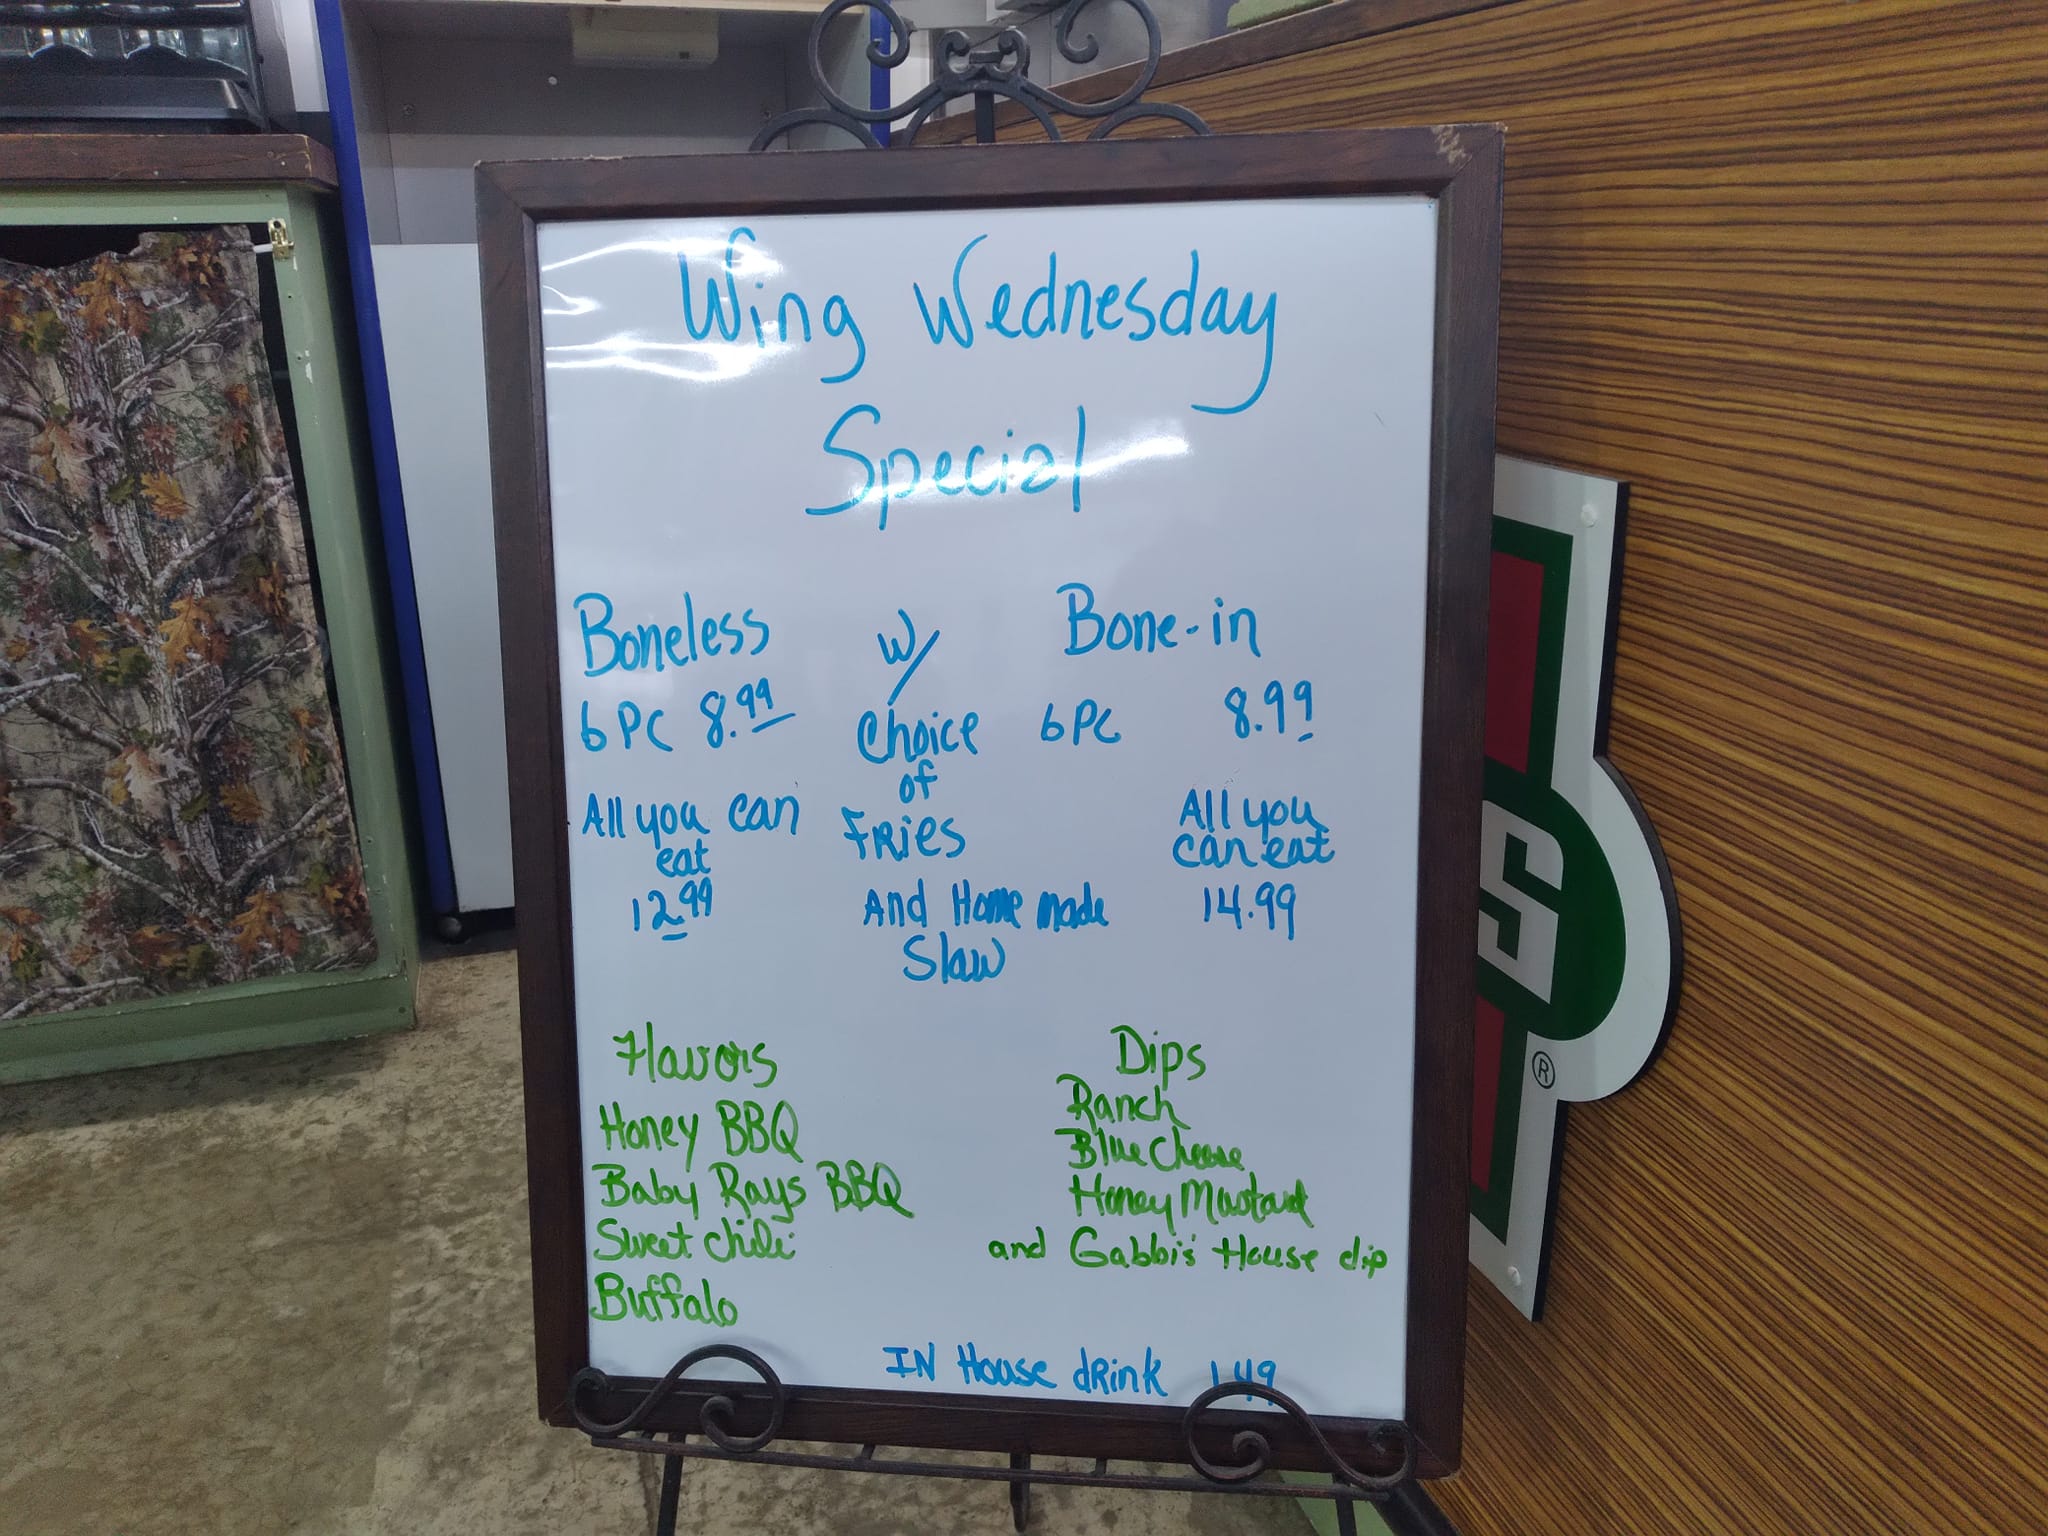 Wing Wednesday
Special
Boneless
6 PC 8.99
All you can
eat
12.99
w/
Choice
of
Fries
And Home made
Slaw
Bone-in
6 PC 8.99
All you
can eat
14.99
Flavors
Honey BBQ
Baby Rays BBQ
Sweet chili
Buffalo
Dips
Ranch
Blue Cheese
Honey Mustard
and Gabbi's House dip
IN House drink 1.49
S
®